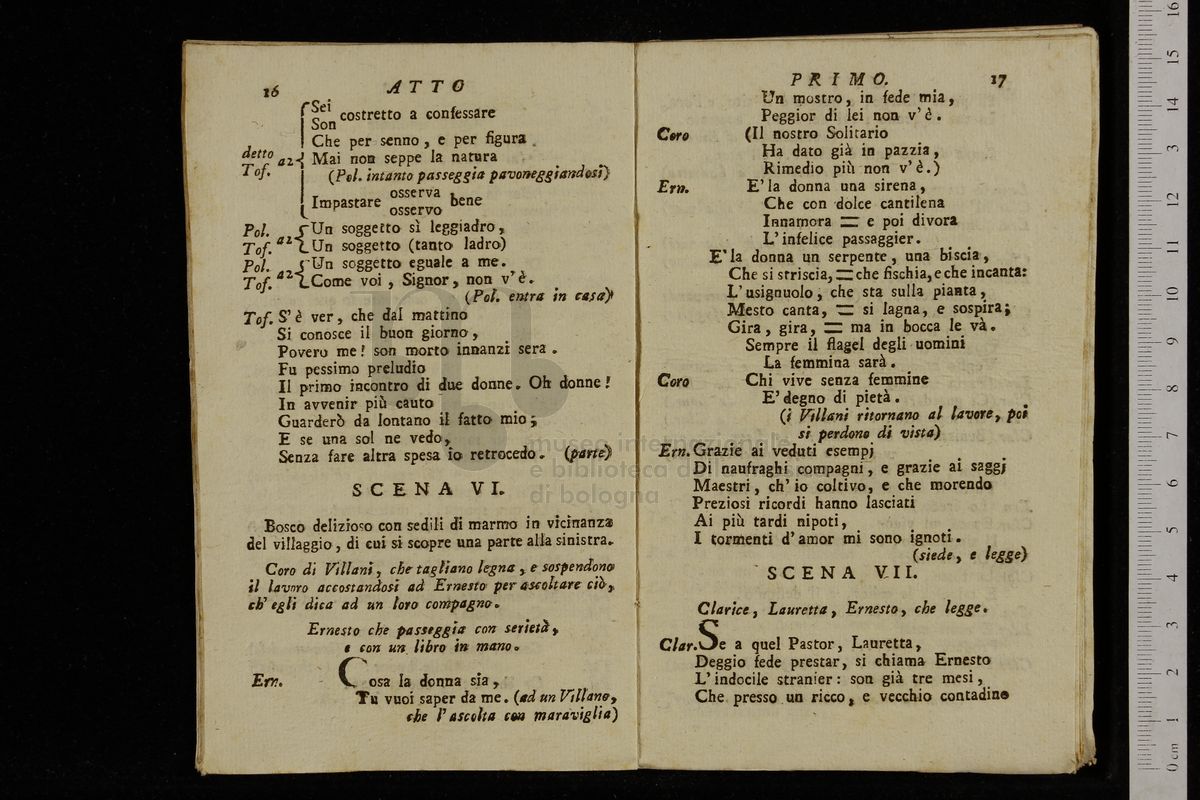 16 ATTO
Sei
Son costretto a confessare
Che per senno, e per figura
detto
Tof. a2 Mai non seppe la natura
(Pol. intanto passeggia pavoneggiandosi)
Impastare osserva bene
osservo
Pol. a2 Un soggetto sì leggiadro,
Tof. Un soggetto (tanto ladro)
Pol. a2 Un soggetto eguale a me.
Tof. Come voi, Signor, non v'è.
(Pol. entra in casa)
Tof. S'è ver, che dal mattino
Si conosce il buon giorno,
Povero me! son morto innanzi sera.
Fu pessimo preludio
Il primo incontro di due donne. Oh donne!
In avvenir più cauto
Guarderò da lontano il fatto mio;
E se una sol ne vedo,
Senza fare altra spesa io retrocedo. (parte)
SCENA VI.
Bosco delizioso con sedili di marmo in vicinanza
del villaggio, di cui si scopre una parte alla sinistra.
Coro di Villani, che tagliano legna, e sospendono
il lavoro accostandosi ad Ernesto per ascoltare ciò,
ch'egli dica ad un loro compagno.
Ernesto che passeggia con serietà,
e con un libro in mano.
Ern. Cosa la donna sia,
Tu vuoi saper da me. (ad un Villano,
che l'ascolta con maraviglia)
PRIMO. 17
Un mostro, in fede mia,
Peggior di lei non v'è.
Coro (Il nostro Solitario
Ha dato già in pazzia,
Rimedio più non v'è.)
Ern. E' la donna una sirena,
Che con dolce cantilena
Innamora = e poi divora
L'infelice passaggier.
E' la donna un serpente, una biscia,
Che si striscia, = che fischia, e che incanta:
L'usignuolo, che sta sulla pianta,
Mesto canta, = si lagna, e sospira;
Gira, gira, = ma in bocca le và.
Sempre il flagel degli uomini
La femmina sarà.
Coro Chi vive senza femmine
E' degno di pietà.
(i Villani ritornano al lavore, poi
si perdono di vista)
Ern. Grazie ai veduti esempj
Di naufraghi compagni, e grazie ai saggj
Maestri, ch'io coltivo, e che morendo
Preziosi ricordi hanno lasciati
Ai più tardi nipoti,
I tormenti d'amor mi sono ignoti.
(siede, e legge)
SCENA VII.
Clarice, Lauretta, Ernesto, che legge.
Clar. Se a quel Pastor, Lauretta,
Deggio fede prestar, si chiama Ernesto
L'indocile stranier: son già tre mesi,
Che presso un ricco, e vecchio contadino
museo internazionale
e biblioteca della
di bologna
0 cm 1 2 3 4 5 6 7 8 9 10 11 12 13 14 15 16